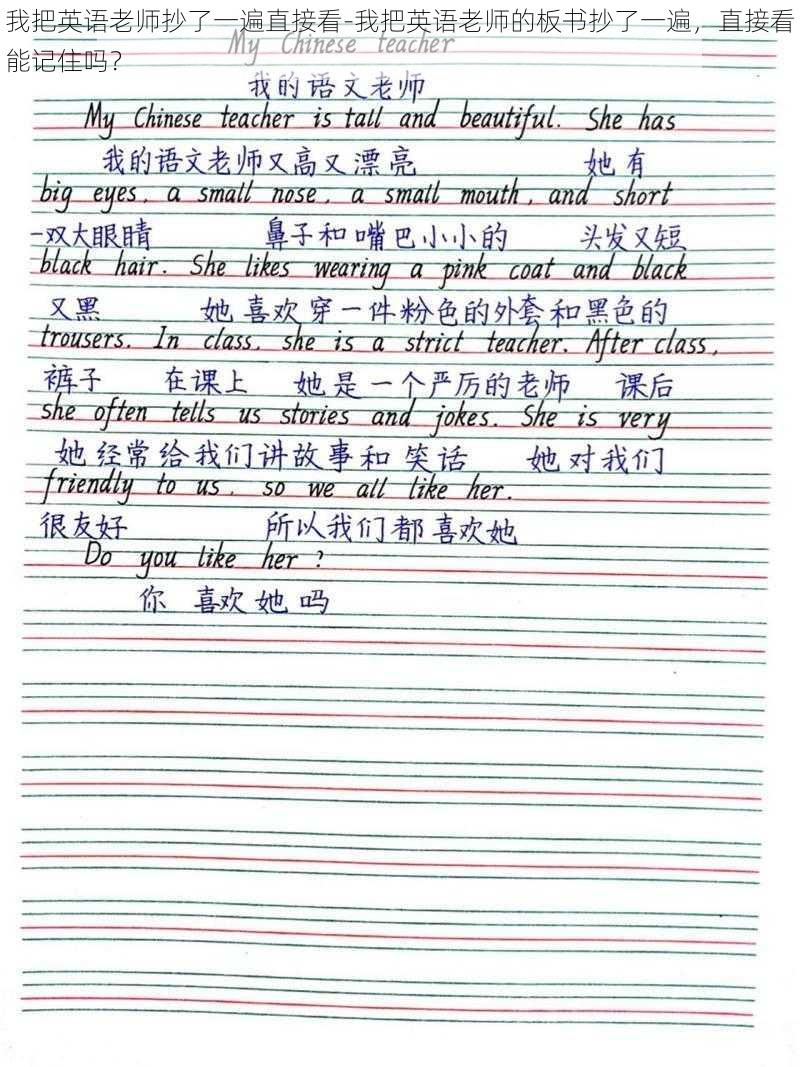 我把英语老师抄了一遍直接看-我把英语老师的板书抄了一遍，直接看
能记住吗？
My Chinese teacher
我的语文老师
My Chinese teacher is tall and beautiful. She has
我的语文老师又高又漂亮 她有
big eyes, a small nose, a small mouth, and short
一双大眼睛 鼻子和嘴巴小小的 头发又短
black hair. She likes wearing a pink coat and black
又黑 她喜欢穿一件粉色的外套和黑色的
trousers. In class, she is a strict teacher. After class,
裤子 在课上 她是一个严厉的老师 课后
she often tells us stories and jokes. She is very
她经常给我们讲故事和笑话 她对我们
friendly to us, so we all like her.
很友好 所以我们都喜欢她
Do you like her?
你喜欢她吗